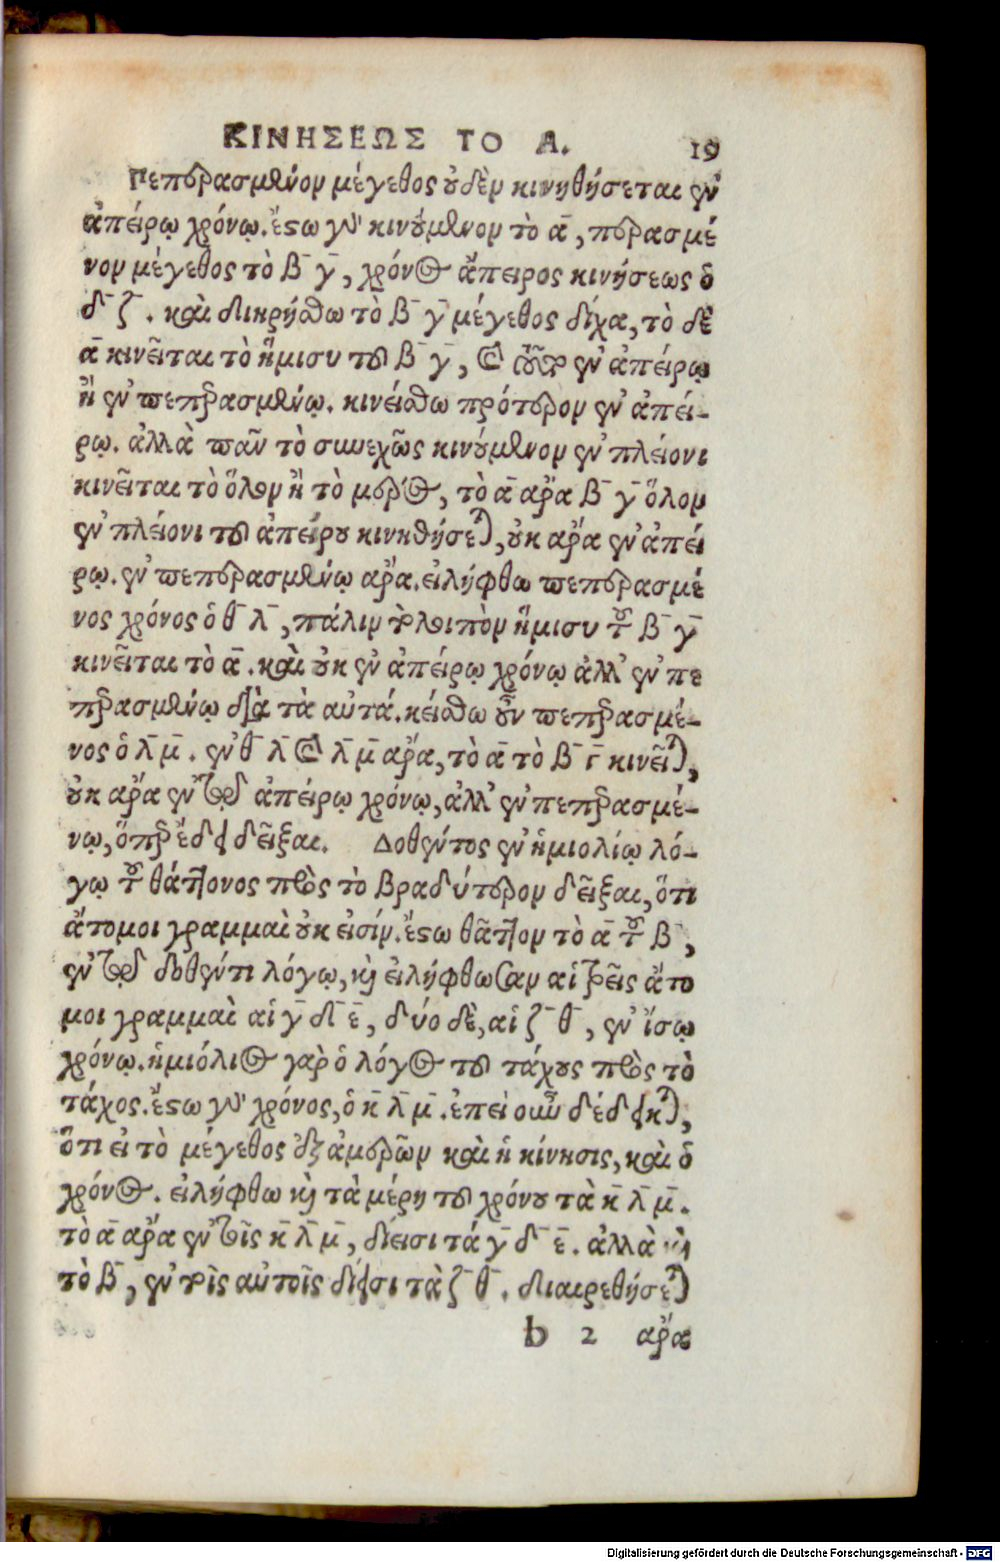 ΚΙΝΗΣΕΩΣ ΤΟ Α. 19
Πεπερασμένον μέγεθος οὐδὲν κινηθήσεται ἐν
ἀπείρῳ χρόνῳ. ἔστω γὰρ κινούμενον τὸ ᾱ, περασμέ
νον μέγεθος τὸ β̄ γ̄, χρόνος ἄπειρος κινήσεως ὁ
δ̄ ζ̄. καὶ διῃρήσθω τὸ β̄ γ̄ μέγεθος δίχα, τὸ δὲ
ᾱ κινεῖται τὸ ἥμισυ τοῦ β̄ γ̄, καὶ ἤτοι ἐν ἀπείρῳ
ἢ ἐν πεπερασμένῳ. κινείσθω πρότερον ἐν ἀπεί-
ρῳ. ἀλλὰ πᾶν τὸ συνεχῶς κινούμενον ἐν πλείονι
κινεῖται τὸ ὅλον ἢ τὸ μέρος, τὸ ᾱ ἄρα β̄ γ̄ ὅλον
ἐν πλείονι τοῦ ἀπείρου κινηθήσεται, οὐκ ἄρα ἐν ἀπεί
ρῳ. ἐν πεπερασμένῳ ἄρα. εἰλήφθω πεπερασμέ
νος χρόνος ὁ θ̄ λ̄, πάλιν τὸ λοιπὸν ἥμισυ τοῦ β̄ γ̄
κινεῖται τὸ ᾱ. καὶ οὐκ ἐν ἀπείρῳ χρόνῳ ἀλλ' ἐν πε
περασμένῳ διὰ τὰ αὐτά. κείσθω οὖν πεπερασμέ-
νος ὁ λ̄ μ̄. ἐν θ̄ λ̄ καὶ λ̄ μ̄ ἄρα, τὸ ᾱ τὸ β̄ γ̄ κινεῖται,
οὐκ ἄρα ἐν τῷ ἀπείρῳ χρόνῳ, ἀλλ' ἐν πεπερασμέ-
νῳ, ὅπερ ἔδει δεῖξαι. Δοθέντος ἐν ἡμιολίῳ λό-
γῳ τοῦ θάττονος πρὸς τὸ βραδύτερον δεῖξαι, ὅτι
ἄτομοι γραμμαὶ οὐκ εἰσίν. ἔστω θᾶττον τὸ ᾱ τοῦ β̄,
ἐν τῷ δοθέντι λόγῳ, καὶ εἰλήφθωσαν αἱ τρεῖς ἄτο
μοι γραμμαὶ αἱ γ̄ δ̄ ε̄, δύο δὲ, αἱ ζ̄ θ̄, ἐν ἴσῳ
χρόνῳ. ἡμιόλιος γὰρ ὁ λόγος τοῦ τάχους πρὸς τὸ
τάχος. ἔστω γὰρ χρόνος, ὁ κ̄ λ̄ μ̄. ἐπεὶ οὖν δέδεικται,
ὅτι εἰ τὸ μέγεθος ἐξ ἀμερῶν καὶ ἡ κίνησις, καὶ ὁ
χρόνος. εἰλήφθω καὶ τὰ μέρη τοῦ χρόνου τὰ κ̄ λ̄ μ̄.
τὸ ᾱ ἄρα ἐν τοῖς κ̄ λ̄ μ̄, δίεισι τά γ̄ δ̄ ε̄. ἀλλὰ καὶ
τὸ β̄, ἐν τοῖς αὐτοῖς δίεισι τὰ ζ̄ θ̄. διαιρεθήσεται
b 2 ἄρα
Digitalisierung gefördert durch die Deutsche Forschungsgemeinschaft - DFG